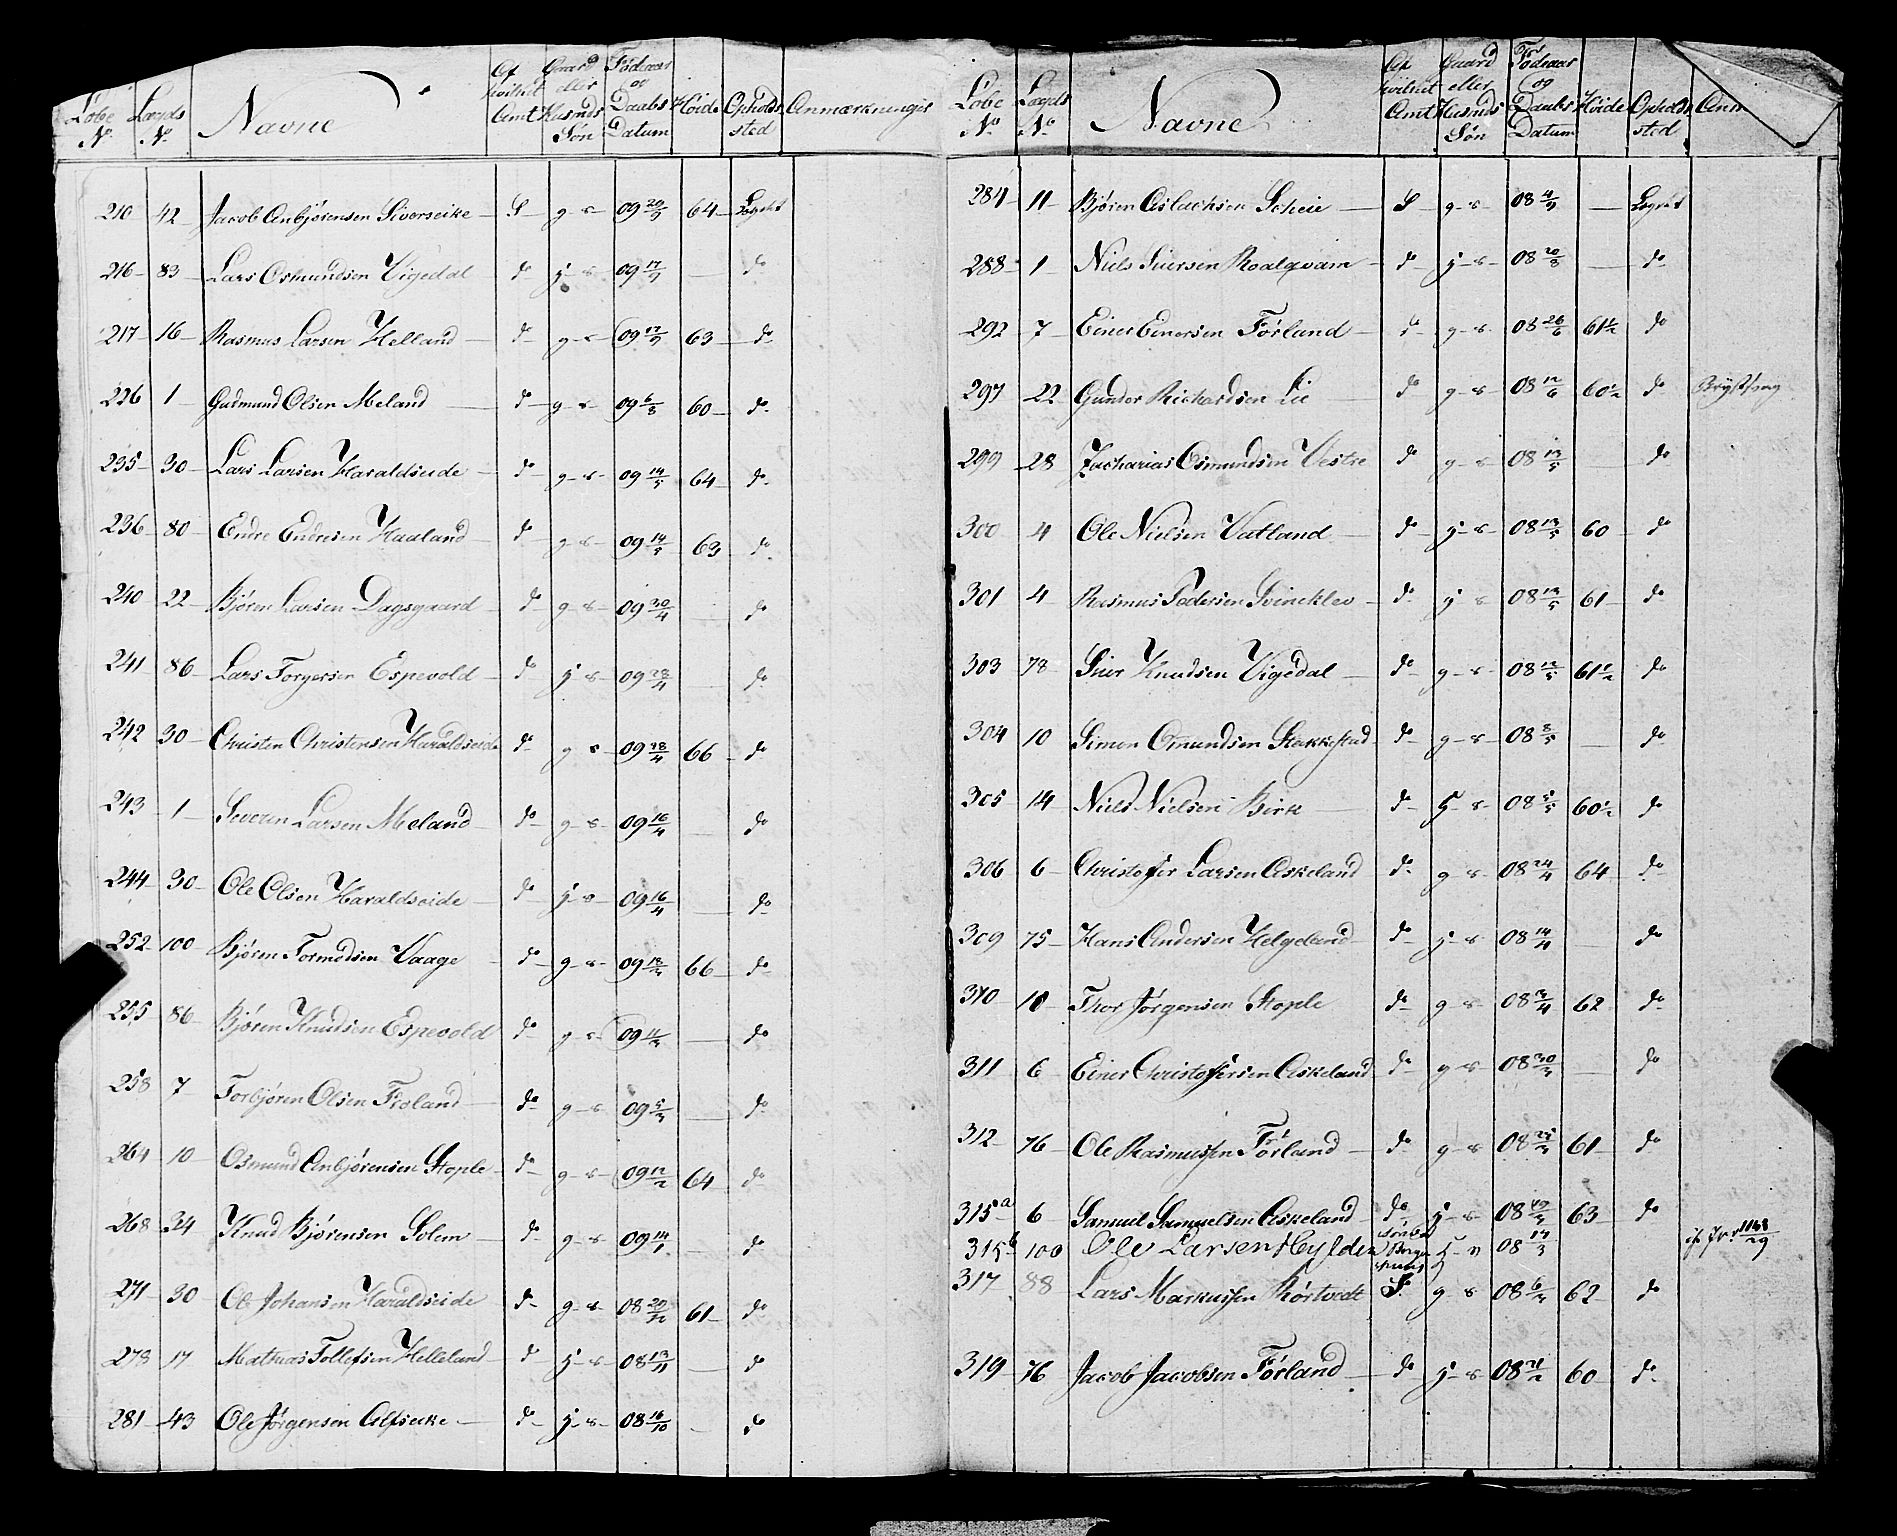 Løbe No. Lægds No. Navne Af hvilket Amt Gaard eller Husmds Søn Fødeaar og Daabs Datum Høide Opholds sted Anmærkninger
210 42 Jacob Anbjørensen Siverseike S g s 09 20/9 64 Lægdet
216 83 Lars Osmundsen Vigedal do j s 09 17/9 — do
217 16 Rasmus Larsen Helland do g s 09 17/9 63 do
226 1 Gudmund Olsen Meland do g s 09 6/8 60 do
235 30 Lars Larsen Haraldseide do g s 09 14/5 64 do
236 80 Endre Endresen Haaland do g s 09 14/5 63 do
240 22 Bjøren Larsen Dagsgaard do g s 09 30/4 do
241 86 Lars Torgersen Espevold do j s 09 23/4 — do
242 30 Christen Christensen Haraldseide do g s 09 23/4 66 do
243 1 Severin Larsen Meland do g s 09 16/4 — do
244 30 Ole Olsen Haraldseide do j s 09 16/4 — do
252 100 Bjøren Tormodsen Vaage do g s 09 12/3 66 do
255 86 Bjøren Knudsen Espevold do g s 09 11/3 — do
258 7 Torbjøren Olsen Fioland do g s 09 5/3 — do
264 10 Osmund Anbjørensen Stople do g s 09 12/2 64 do
268 34 Knud Bjørensen Solem do g s 09 14/1 do
271 30 Ole Johansen Haraldseide do g s 08 20/12 61 do
278 17 Mathias Tollefsen Helleland do j s 08 13/11 — do
281 43 Ole Jørgensen Alfseike do j s 08 16/10 — do
Løbe No. Lægds No. Navne Af hvilket Amt Gaard eller Husmds Søn Fødeaar og Daabs Datum Høide Opholds sted Anm
284 11 Bjøren Aslachsen Scheie S g s 08 4/9 — Lægdet
288 1 Niels Siversen Roalqvam do j s 08 20/8 — do
292 7 Einer Einersen Førland do g s 08 26/6 61½ do
297 22 Gunder Richardsen Lie do g s 08 12/6 60½ do Brystsvag
299 28 Zacharias Osmundsen Vestre do g s 08 13/5 do
300 4 Ole Nielsen Vatland do j s 08 13/5 60 do
301 4 Rasmus Pedersen Svincklev do j s 08 13/5 61 do
303 78 Siver Knudsen Vigedal do g s 08 12/5 61½ do
304 10 Simon Omundsen Stakkestad do g s 08 8/5 — do
305 14 Niels Nielsen Birk do j s 08 5/5 60½ do
306 6 Christofer Larsen Askeland do g s 08 24/4 64 do
309 75 Hans Andersen Helgeland do j s 08 14/4 — do
310 10 Thor Jørgensen Stople do g s 08 3/4 62 do
311 6 Einer Christofersen Askeland do g s 08 30/3 — do
312 76 Ole Rasmussen Førland do g s 08 25/3 61 do
315a 6 Samuel Samuelsen Askeland do j s 08 19/3 63 do
315b 100 Ole Larsen Hylden Søndre Bergenhuus 08 17/3
317 88 Lars Markussen Rørtvedt S g s 08 6/3 62 do
319 76 Jacob Jacobsen Førland do j s 08 21/2 60 do